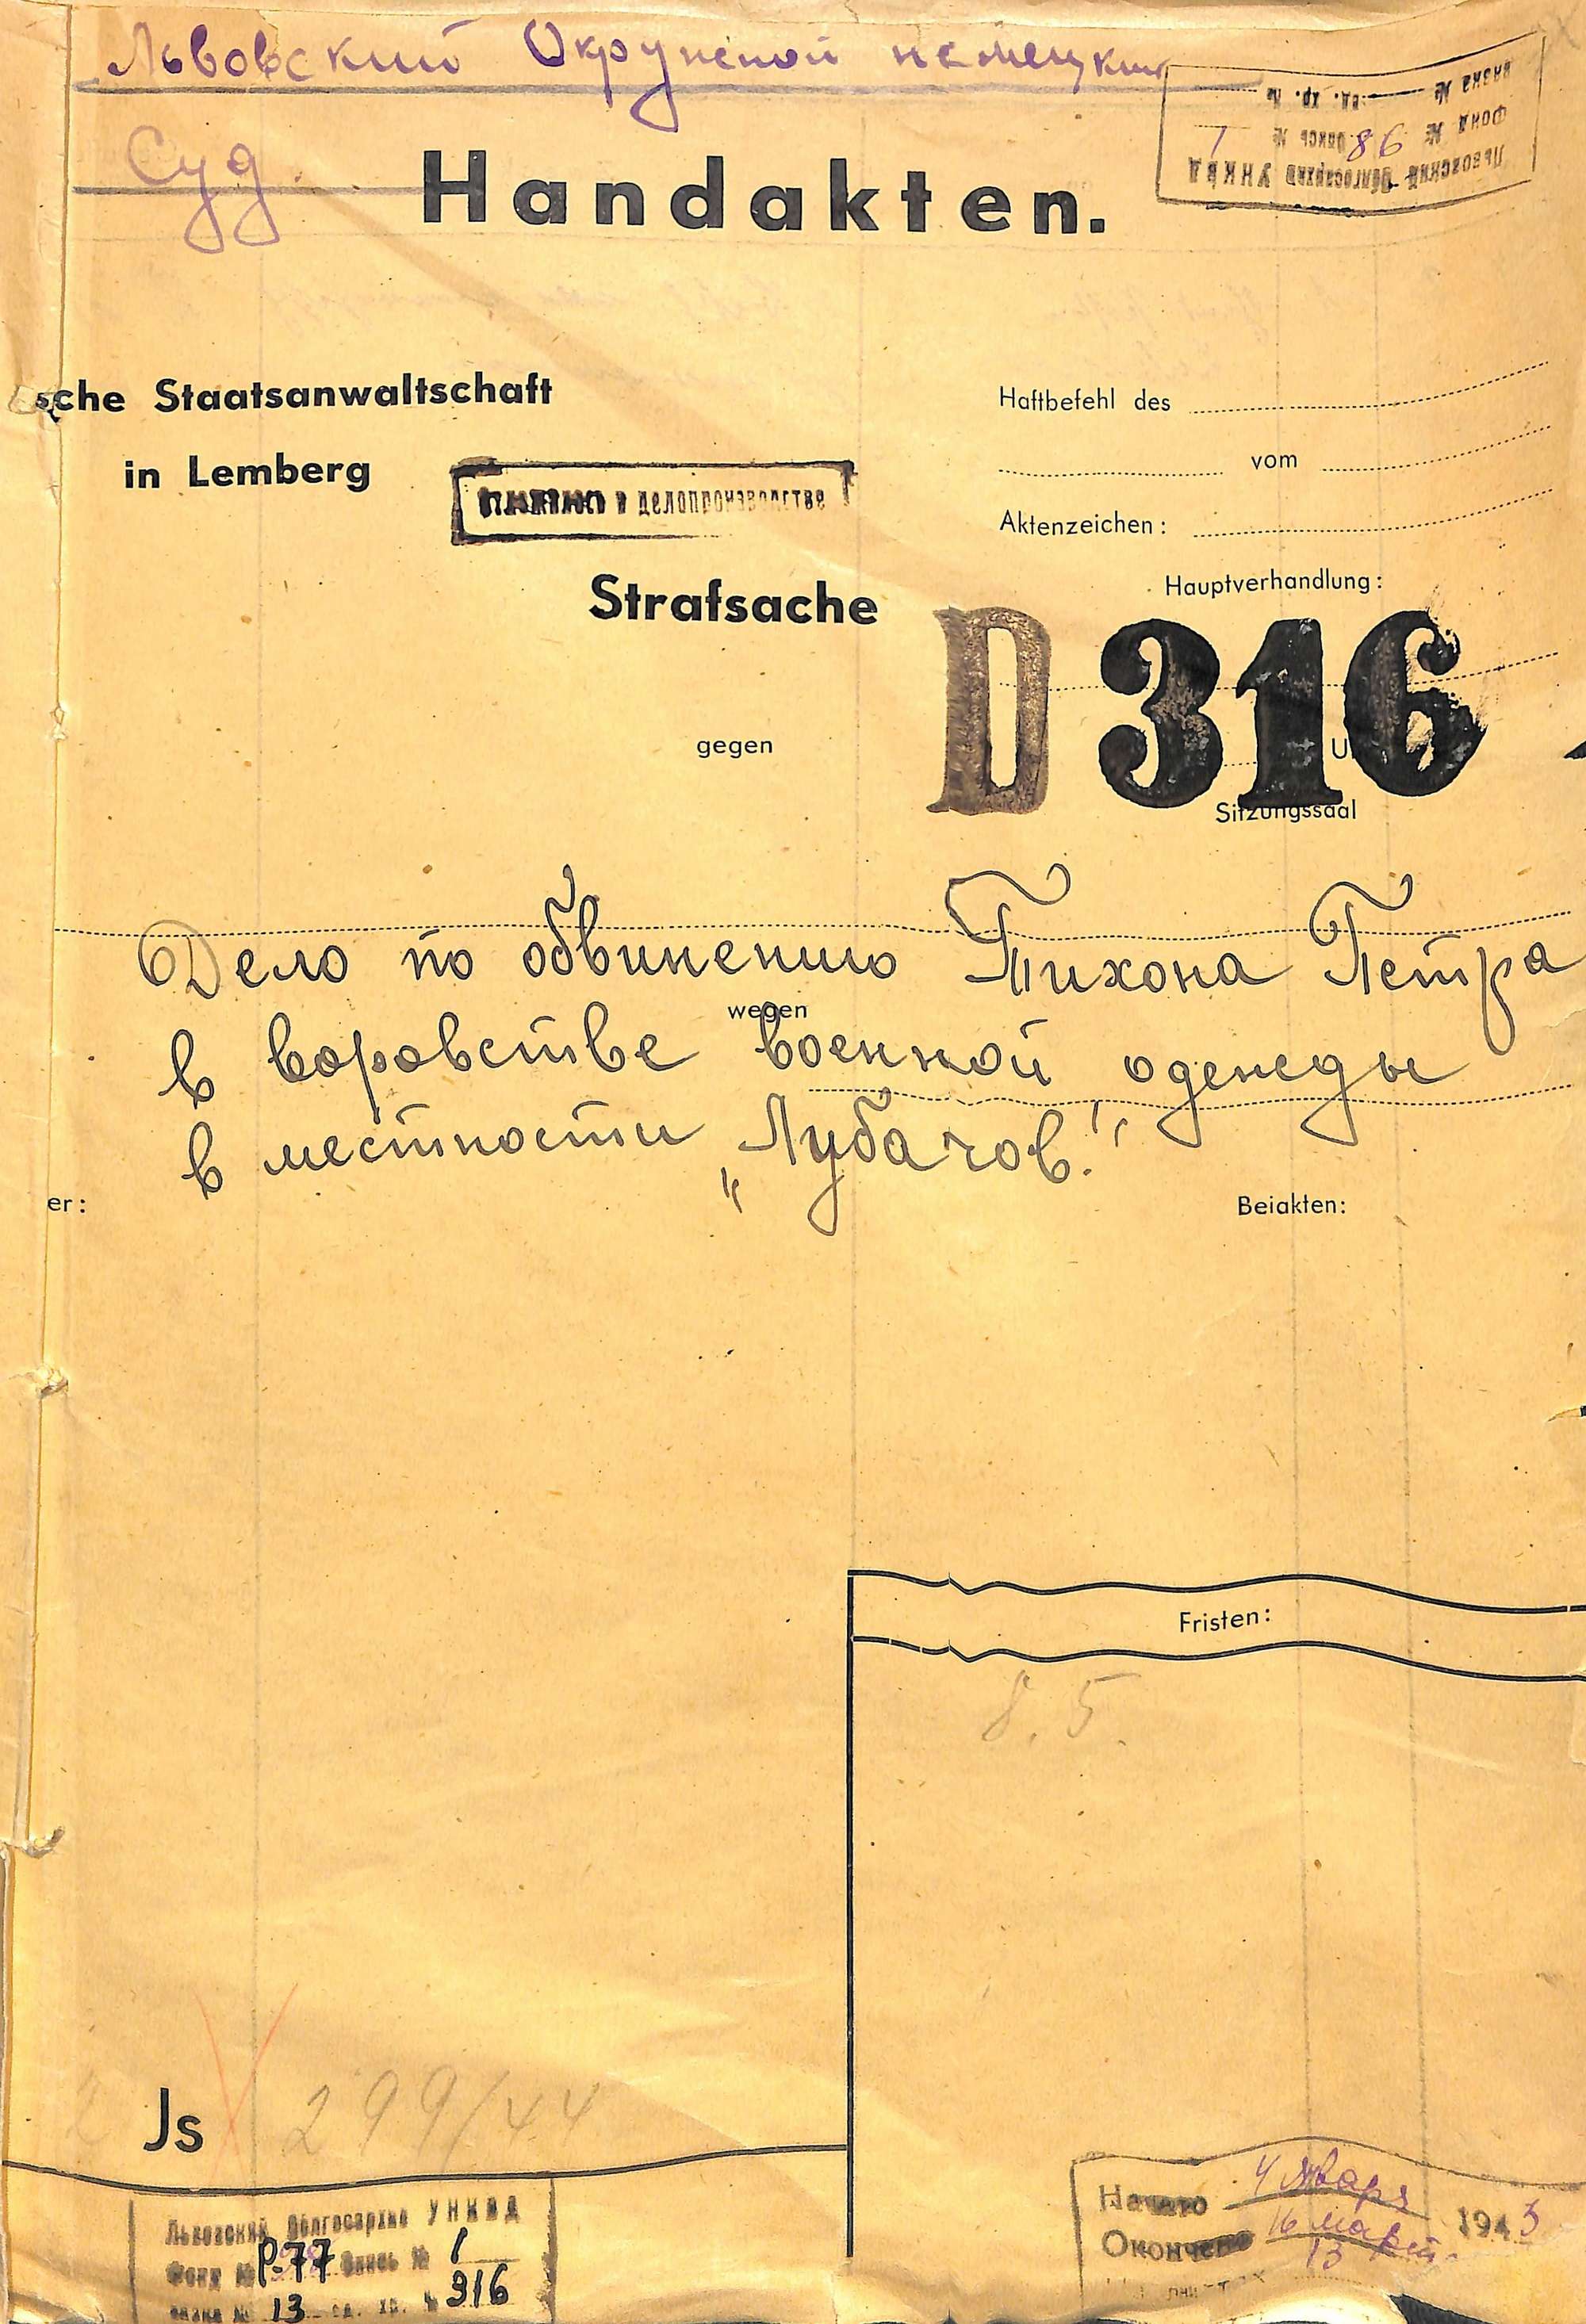 Львовский Окружной немецкий
Суд.
Львовский Облгосархив УНКВД
Фонд № 86 опись № 1
вязка № ед. хр. №
Handakten.
sche Staatsanwaltschaft
in Lemberg
Haftbefehl des
vom
Aktenzeichen:
в делопроизводстве
Hauptverhandlung:
Strafsache
D 316
gegen
U
Sitzungssaal
Дело по обвинению Тихона Петра
wegen
в воровстве военной одежды
в местности „Лубачов."
er:
Beiakten:
Fristen:
8. 5.
Js 299/44
Львовский Облгосархив УНКВД
Фонд № Р-77 Опись № 1
вязка № 13 ед. хр. № 316
Начато 4 января
1943
Окончено 16 март
13